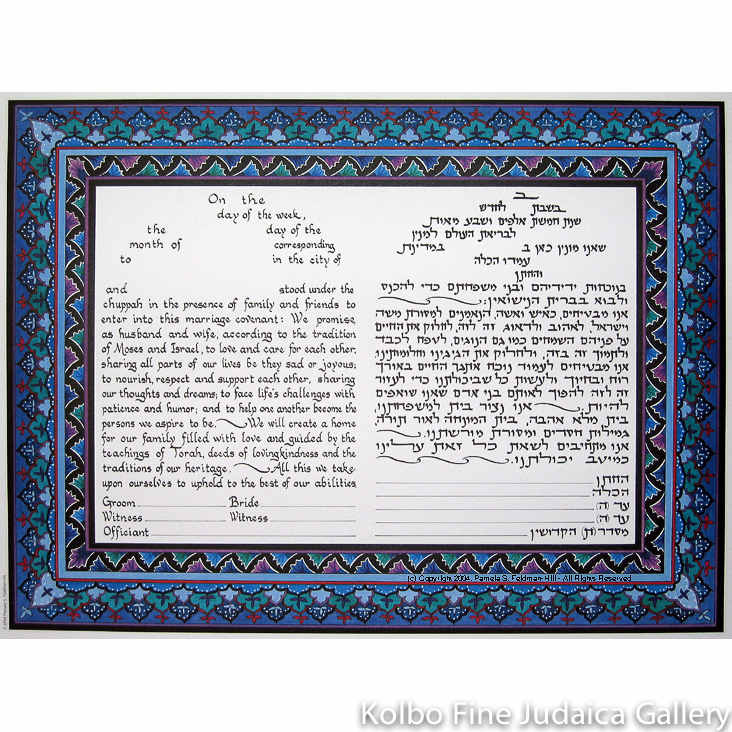 On the
day of the week,
the day of the
month of corresponding
to in the city of
and stood under the
chuppah in the presence of family and friends to
enter into this marriage covenant: We promise,
as husband and wife, according to the tradition
of Moses and Israel, to love and care for each other,
sharing all parts of our lives be they sad or joyous;
to nourish, respect and support each other, sharing
our thoughts and dreams; to face life's challenges with
patience and humor; and to help one another become the
persons we aspire to be. We will create a home
for our family filled with love and guided by the
teachings of Torah, deeds of lovingkindness and the
traditions of our heritage. All this we take
upon ourselves to uphold to the best of our abilities
Groom Bride
Witness Witness
Officiant
ב
בשבת לחודש
שנת חמשת אלפים ושבע מאות
לבריאת העולם למנין
שאנו מונין כאן ב במדינת
עמדו הכלה
והחתן
בנוכחות ידידיהם ובני משפחתם כדי להכנס
ולבוא בברית הנישואין:
אנו מבטיחים, כאיש ואשה, הנאמנים למסורת משה
וישראל, לאהוב ולדאוג זה לזה, לחלוק את החיים
על פניהם השמחים כמו גם הנוגים, לטפח לכבד
ולתמוך זה בזה, ולחלוק את הגיגינו וחלומותינו.
אנו מבטיחים לעמוד נוכח אתגר החיים באורך
רוח ובחיוך, ולעשות כל שביכולתנו כדי לעזור
זה לזה להפוך לאותם בני אדם שאנו שואפים
להיות. אנו ניצור בית למשפחתנו,
בית מלא אהבה, בית המונחה לאור תורה,
גמילות חסדים ומסורת מורשתנו.
אנו מתחייבים לשאת כל זאת עלינו
כמיטב יכולתנו.
החתן
הכלה
עד (ה)
עד (ה)
מסדר(ת) הקדושין
(c) Copyright 2004, Pamela S. Feldman-Hill - All Rights Reserved
Kolbo Fine Judaica Gallery